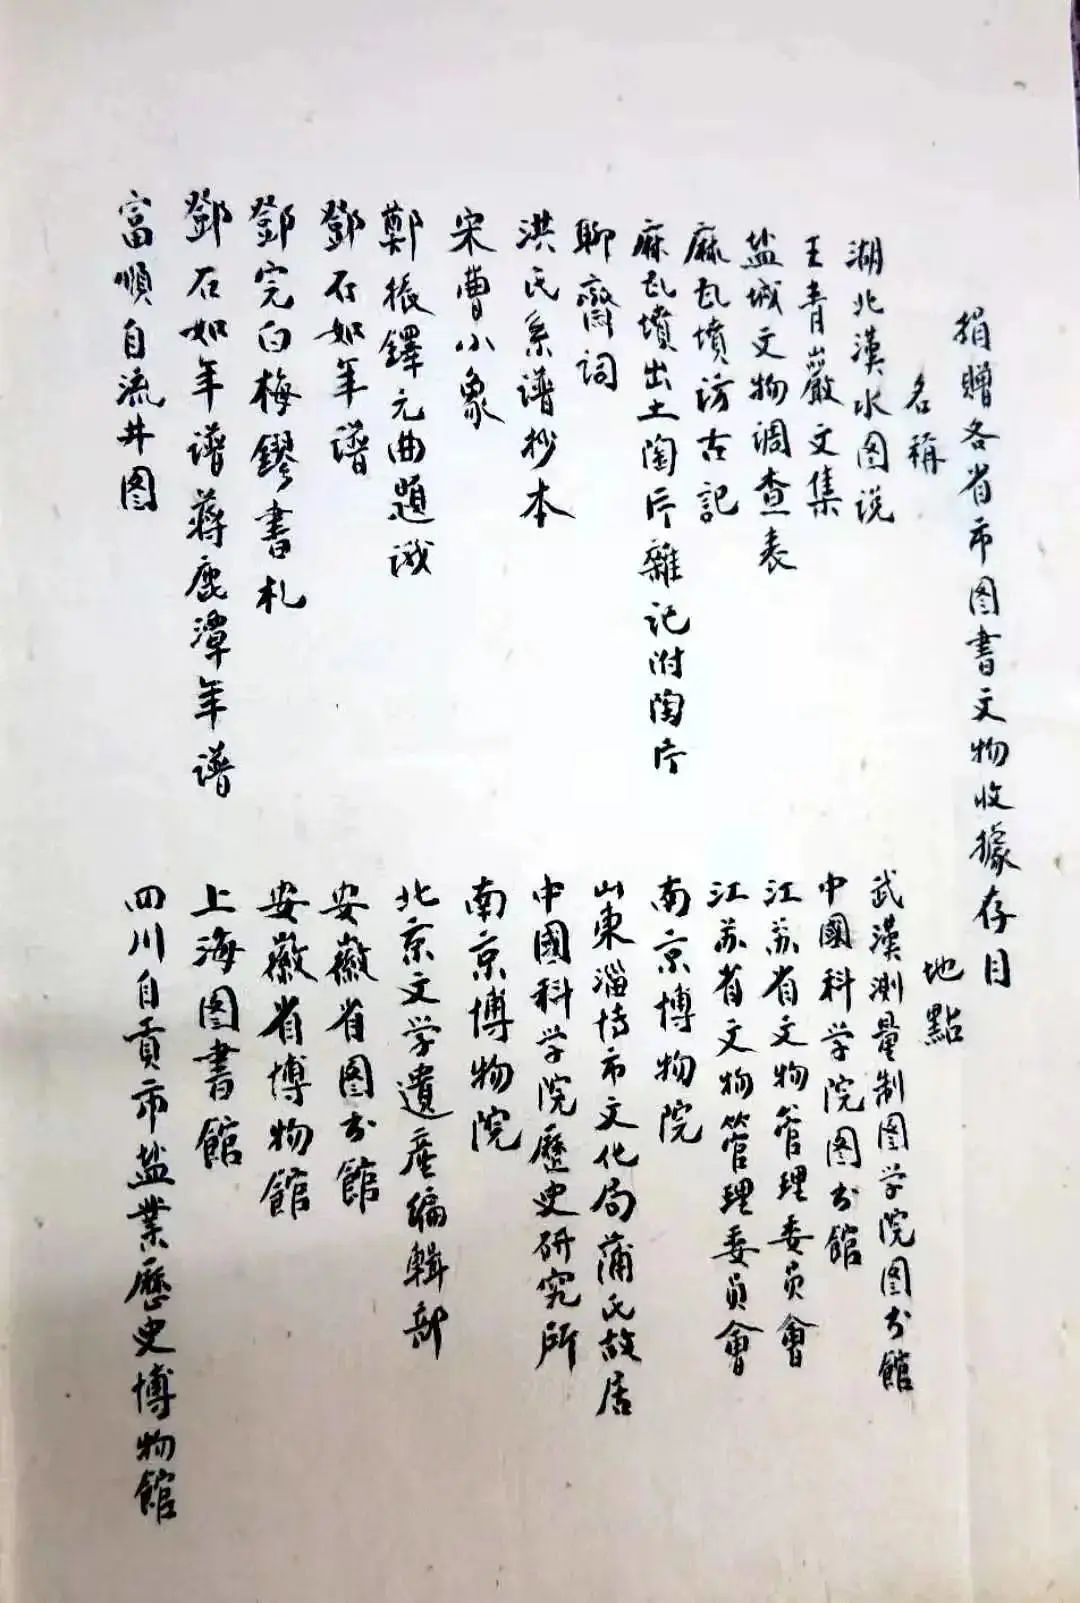 捐贈各省市图書文物收據存目
名稱
地點
湖北漢水图说
武漢測量制图学院图书館
王青嚴文集
中國科学院图书館
盐城文物调查表
江苏省文物管理委员會
麻瓦墳访古記
江苏省文物管理委員會
麻瓦墳出土陶片雜记附陶片
南京博物院
聊齋词
山東淄博市文化局蒲氏故居
洪氏系谱抄本
中國科学院歷史研究所
宋曹小象
南京博物院
鄭振鐸元曲題识
北京文学遺産编輯部
鄧石如年谱
安徽省图书館
鄧完白梅鏐書札
安徽省博物館
鄧石如年谱蒋鹿潭年谱
上海图書館
富順自流井图
四川自貢市盐業歷史博物館